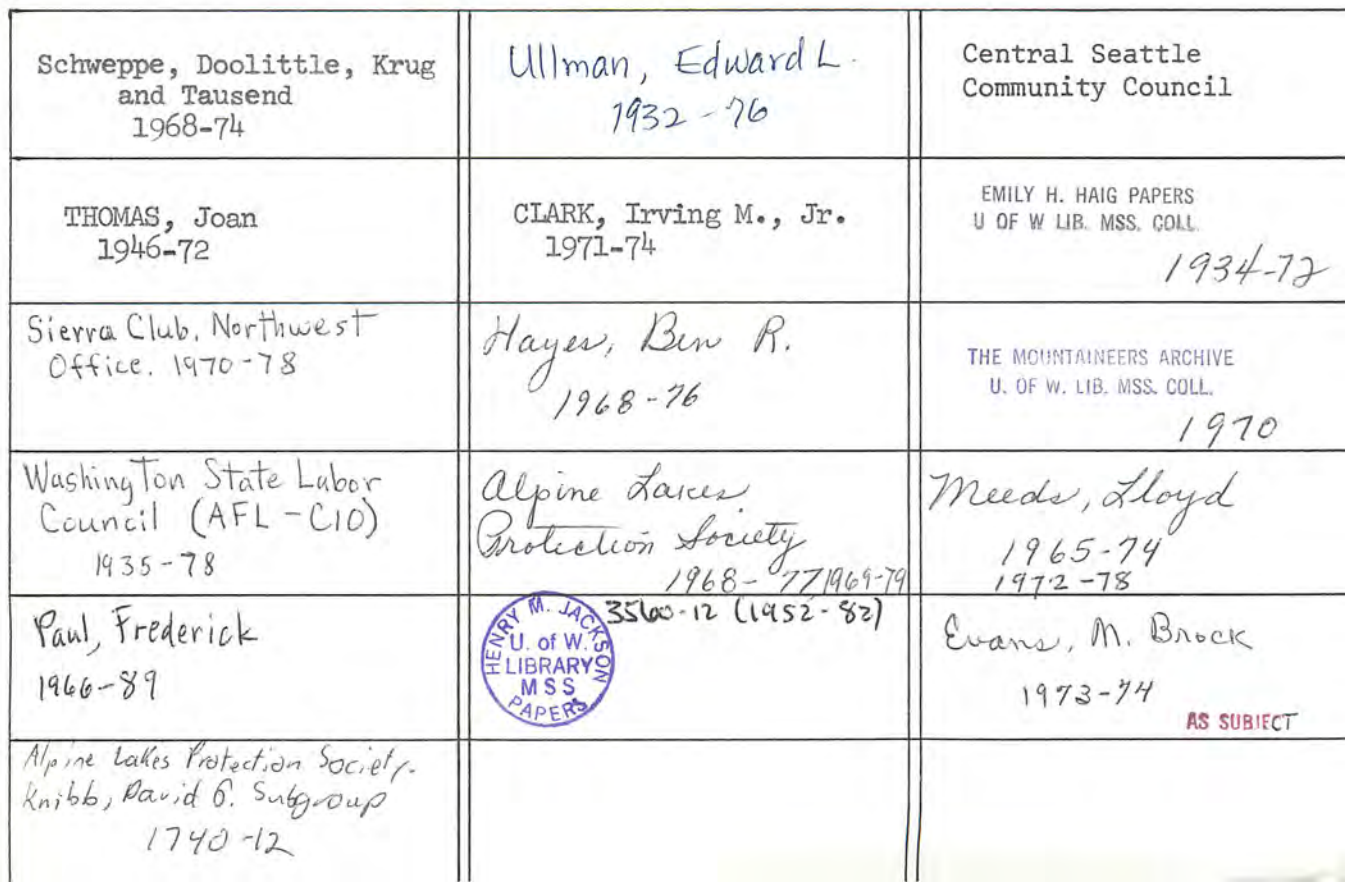 Schweppe, Doolittle, Krug
and Tausend
1968-74
Ullman, Edward L.
1932-76
Central Seattle
Community Council
THOMAS, Joan
1946-72
CLARK, Irving M., Jr.
1971-74
EMILY H. HAIG PAPERS
U OF W LIB. MSS. COLL.
1934-72
Sierra Club. Northwest
Office. 1970-78
Hayes, Ben R.
1968-76
THE MOUNTAINEERS ARCHIVE
U. OF W. LIB. MSS. COLL.
1970
Washington State Labor
Council (AFL-CIO)
1935-78
Alpine Lakes
Protection Society
1968-77 1969-79
Meeds, Lloyd
1965-74
1972-78
Paul, Frederick
1966-89
HENRY M. JACKSON
U. of W.
LIBRARY
MSS
PAPERS
3560-12 (1952-82)
Evans, M. Brock
1973-74
AS SUBJECT
Alpine Lakes Protection Society.
Knibb, David G. Subgroup
1740-12